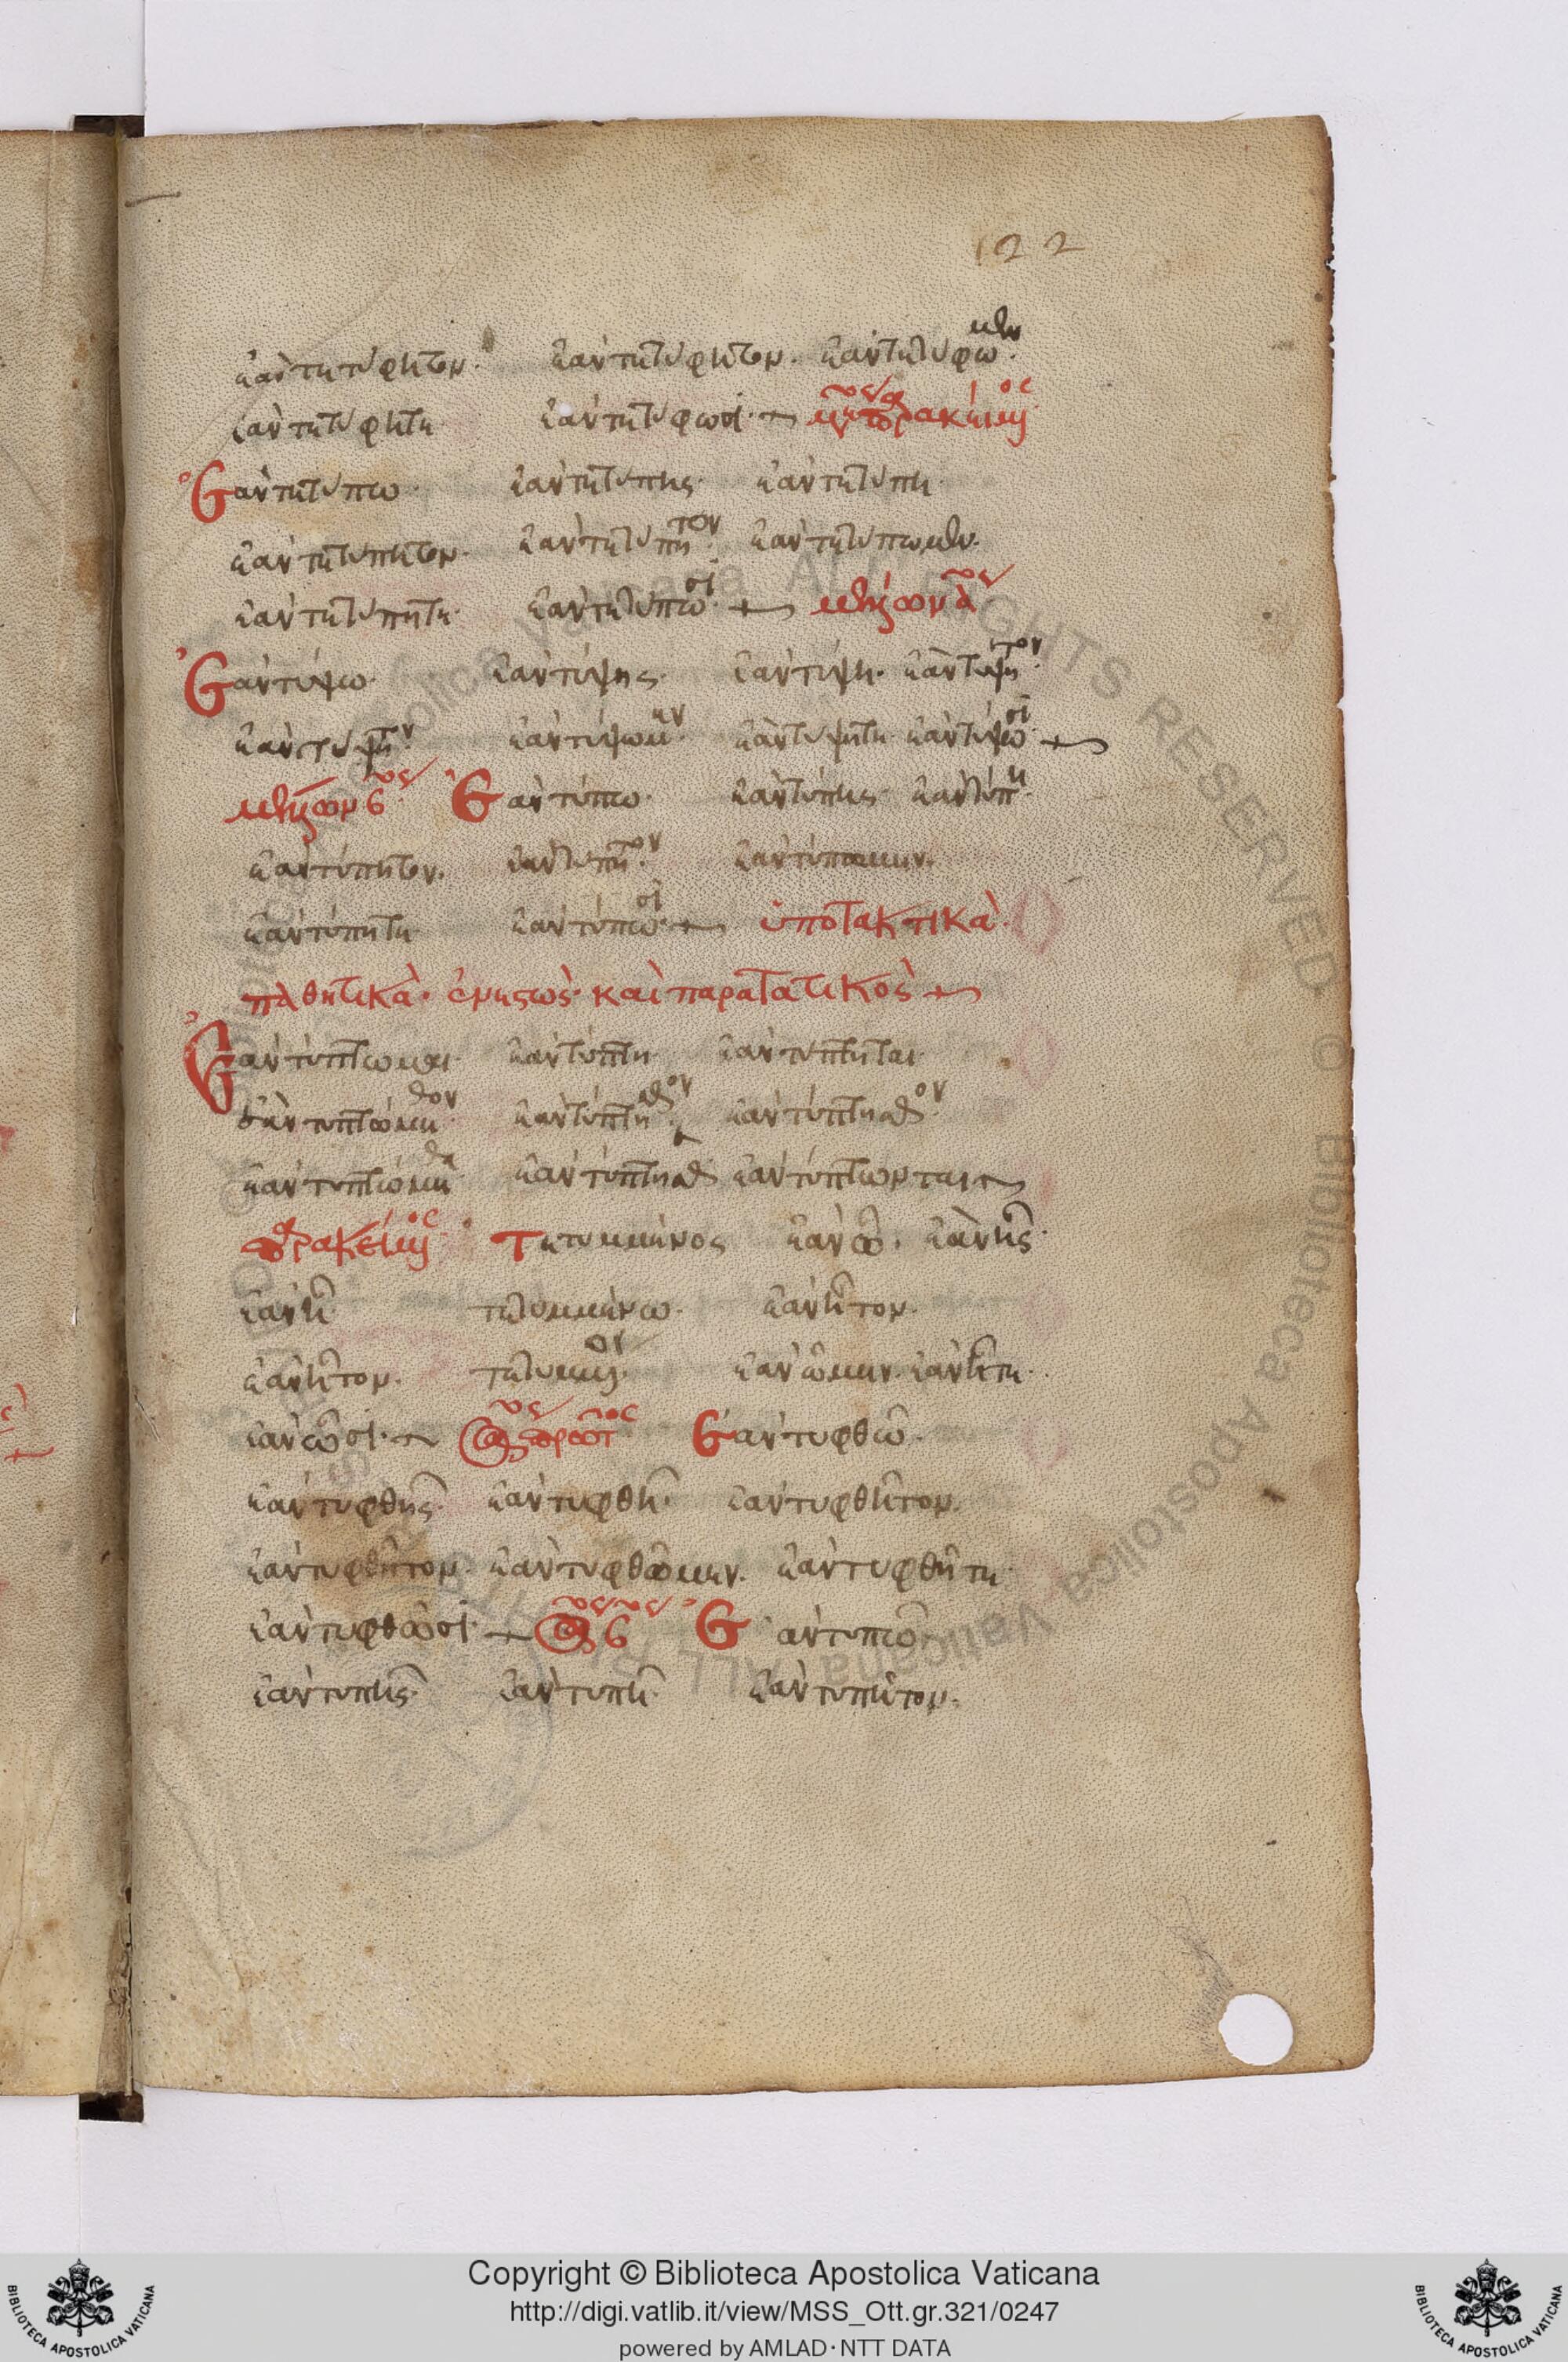 122
ἐὰν τετύφητον· ἐὰν τετύφητον· ἐὰν τετύφωμεν·
ἐὰν τετύφητε ἐὰν τετύφωσι·
Ἐὰν τετύπω· ἐὰν τετύπης· ἐὰν τετύπη·
ἐὰν τετύπητον· ἐὰν τετύπητον· ἐὰν τετύπωμεν·
ἐὰν τετύπητε· ἐὰν τετύπωσι· μέλλων α
Ἐὰν τύψω· ἐὰν τύψης· ἐὰν τύψη· ἐὰν τύψητον·
ἐὰν τύψητον· ἐὰν τύψωμεν· ἐὰν τύψητε· ἐὰν τύψωσι·
μέλλων β Ἐὰν τύπω· ἐὰν τύπης· ἐὰν τύπη·
ἐὰν τύπητον· ἐὰν τύπητον· ἐὰν τύπωμεν·
ἐὰν τύπητε ἐὰν τύπωσι· ὑποτακτικὰ·
παθητικὰ· ἐνεστὼς· καὶ παρατατικὸς
Ἐὰν τύπτωμαι· ἐὰν τύπτη· ἐὰν τύπτηται·
ἐὰν τυπτώμεθον· ἐὰν τύπτησθον· ἐὰν τύπτησθον·
ἐὰν τυπτώμεθα· ἐὰν τύπτησθε ἐὰν τύπτωνται
παρακείμενος Τετυμμένος ἐὰν ὦ· ἐὰν ῆς·
ἐὰν ῆ· τετυμμένω· ἐὰν ῆτον·
ἐὰν ῆτον· τετυμμένοι· ἐὰν ὦμεν· ἐὰν ῆτε·
ἐὰν ὦσι· Ἐὰν τυφθῶ·
ἐὰν τυφθῆς· ἐὰν τυφθῆ· ἐὰν τυφθῆτον·
ἐὰν τυφθῆτον· ἐὰν τυφθῶμεν· ἐὰν τυφθῆτε·
ἐὰν τυφθῶσι· Ἐὰν τυπῶ·
ἐὰν τυπῆς· ἐὰν τυπῆ· ἐὰν τυπῆτον·
Copyright © Biblioteca Apostolica Vaticana
http://digi.vatlib.it/view/MSS_Ott.gr.321/0247
powered by AMLAD·NTT DATA